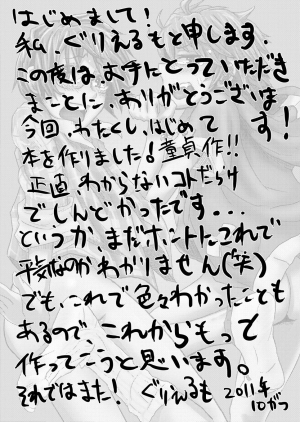 はじめまして！
私、ぐりえるもと申します。
この度は、お手にとっていただき
まことに、ありがとうございま
す！
今回、わたくし、はじめて
本を作りました！童貞作！！
正直、わからないコトだらけ
でしんどかったです...
というか、まだホントにこれで
平気なのかわかりません（笑）
でも、これで色々わかったことも
あるので、これからもって
作ってこうと思います。
それではまた！ ぐりえるも 2011年
10がつ